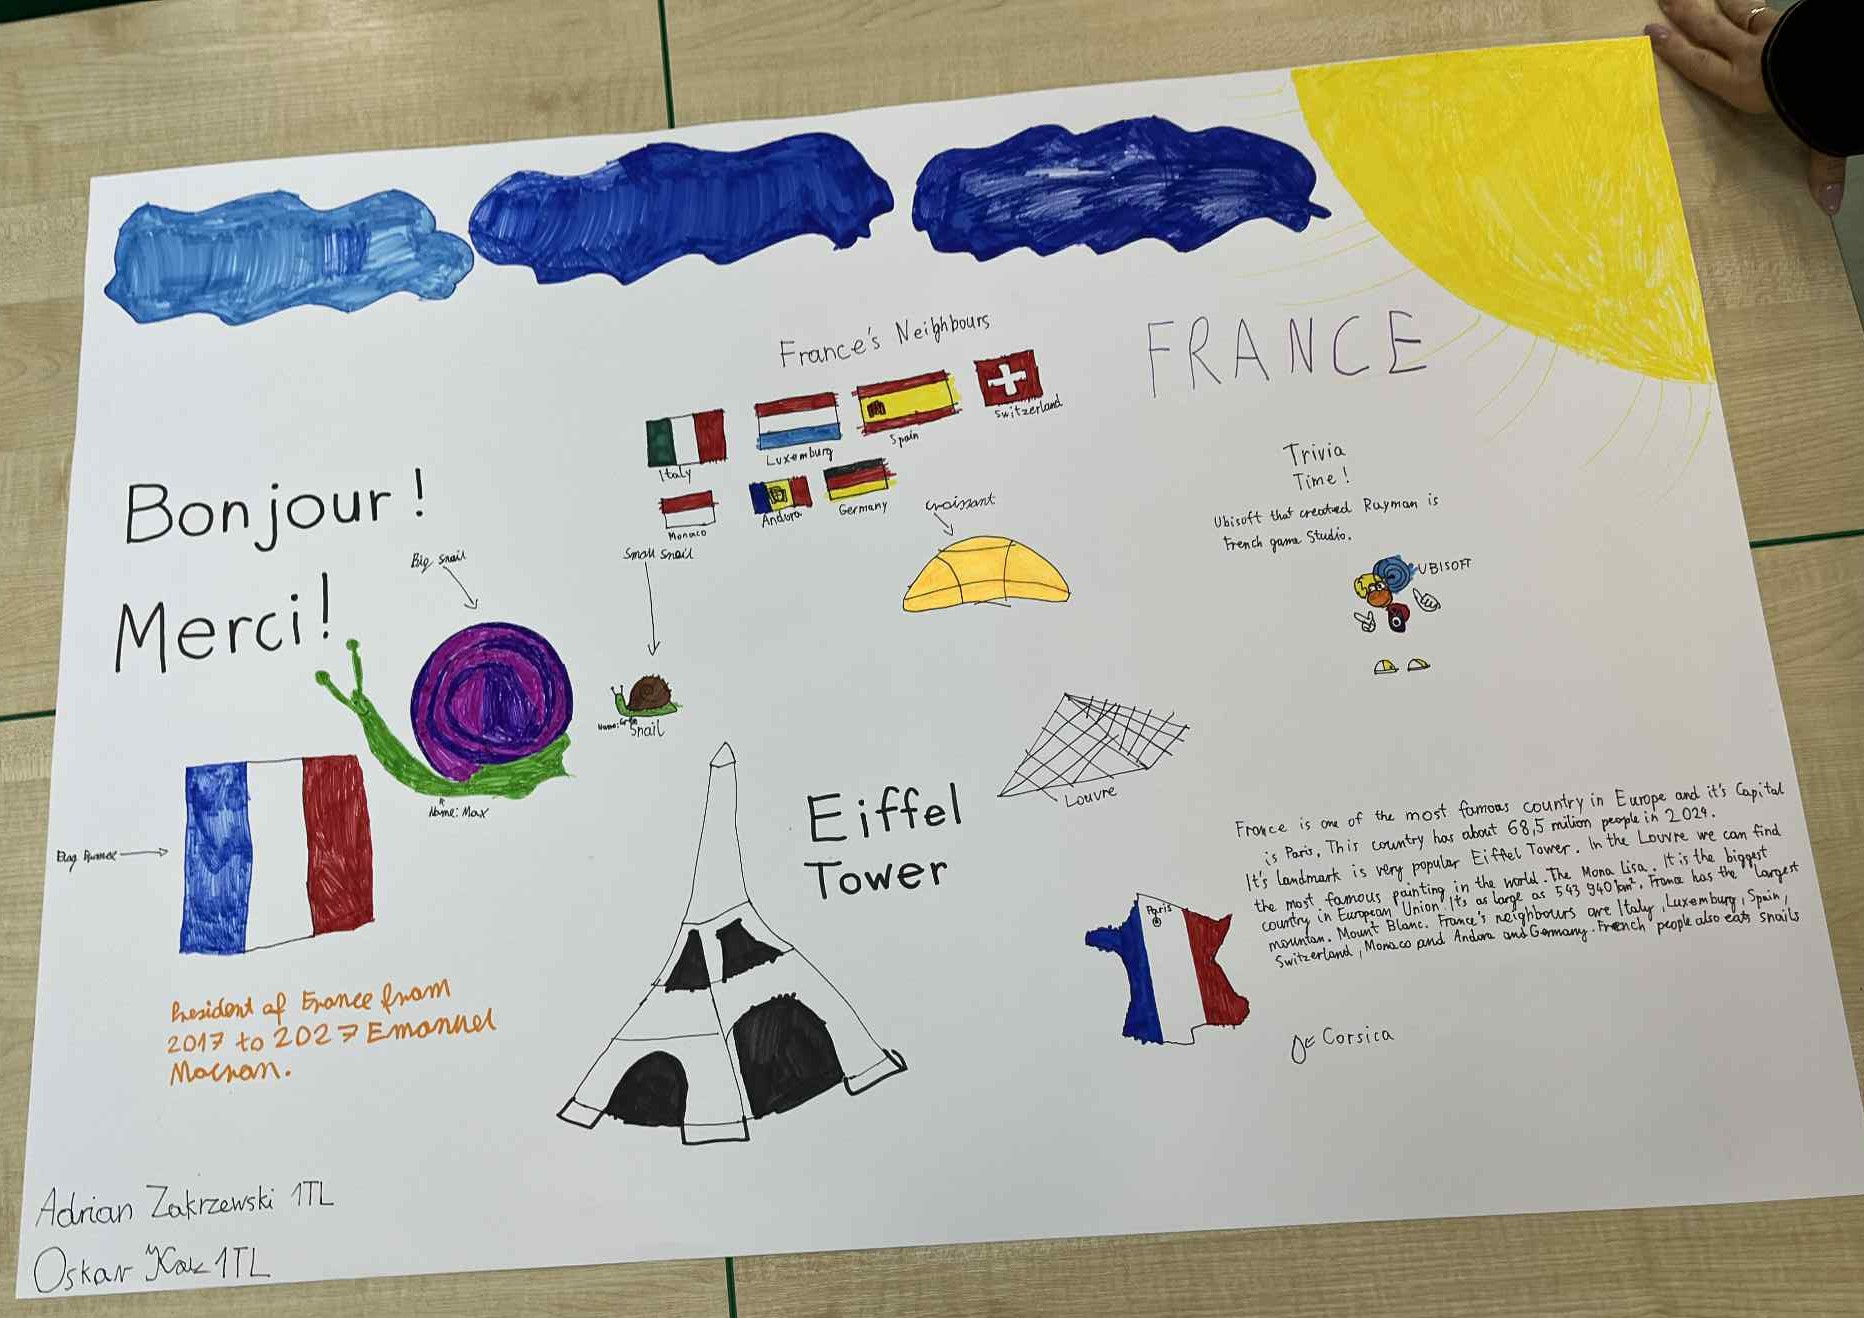 France's Neighbours
FRANCE
Italy
Luxemburg
Spain
Switzerland
Monaco
Andora
Germany
Croissant
Trivia
Time!
Ubisoft that created Rayman is
French game Studio.
UBISOFT
Bonjour!
Merci!
Big snail
Small snail
Name:
Snail
Name: Max
Louvre
Eiffel
Tower
France is one of the most famous country in Europe and it's Capital
is Paris. This country has about 68,5 milion people in 2024.
It's landmark is very popular Eiffel Tower. In the Louvre we can find
the most famous painting in the world. The Mona Lisa. It is the biggest
country in European Union It's as large as 543 940 km². France has the largest
mountan. Mount Blanc. France's neighbours are Italy, Luxemburg, Spain,
Switzerland, Monaco and Andora and Germany. French people also eats snails
Paris
Corsica
President of France from
2017 to 2027 Emanuel
Macron.
Adrian Zakrzewski 1TL
Oskar 1TL